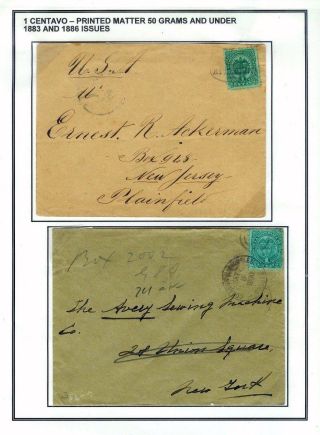 1 CENTAVO – PRINTED MATTER 50 GRAMS AND UNDER
1883 AND 1886 ISSUES
U.S.A
Ernest R. Ackerman
Box 968
New Jersey
Plainfield
Box 2002
The Avery Sewing Machine
Co.
28 Union Square,
New York